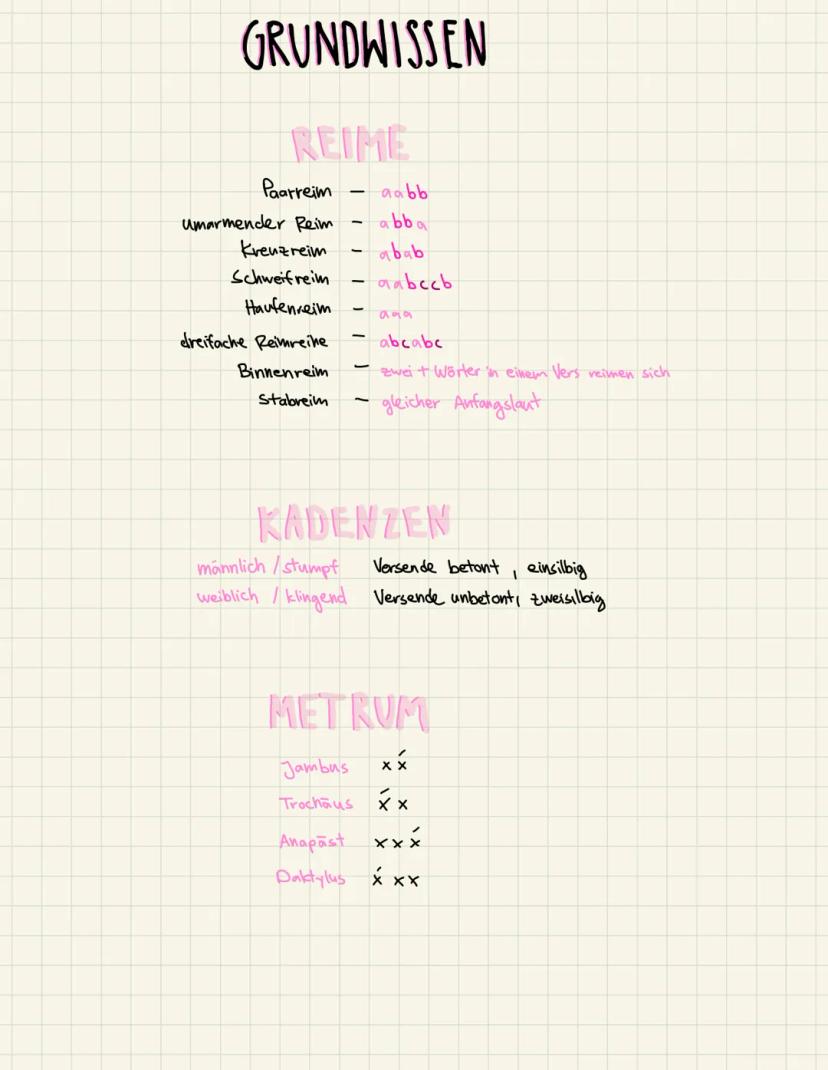 GRUNDWISSEN
REIME
Paarreim – aabb
umarmender Reim – abba
Kreuzreim – abab
Schweifreim – aabccb
Haufenreim – aaa
dreifache Reimreihe – abcabc
Binnenreim – zwei + Wörter in einem Vers reimen sich
Stabreim – gleicher Anfangslaut
KADENZEN
männlich / stumpf Versende betont , einsilbig
weiblich / klingend Versende unbetont, zweisilbig
METRUM
Jambus x x́
Trochäus x́ x
Anapäst x x x́
Daktylus x́ x x